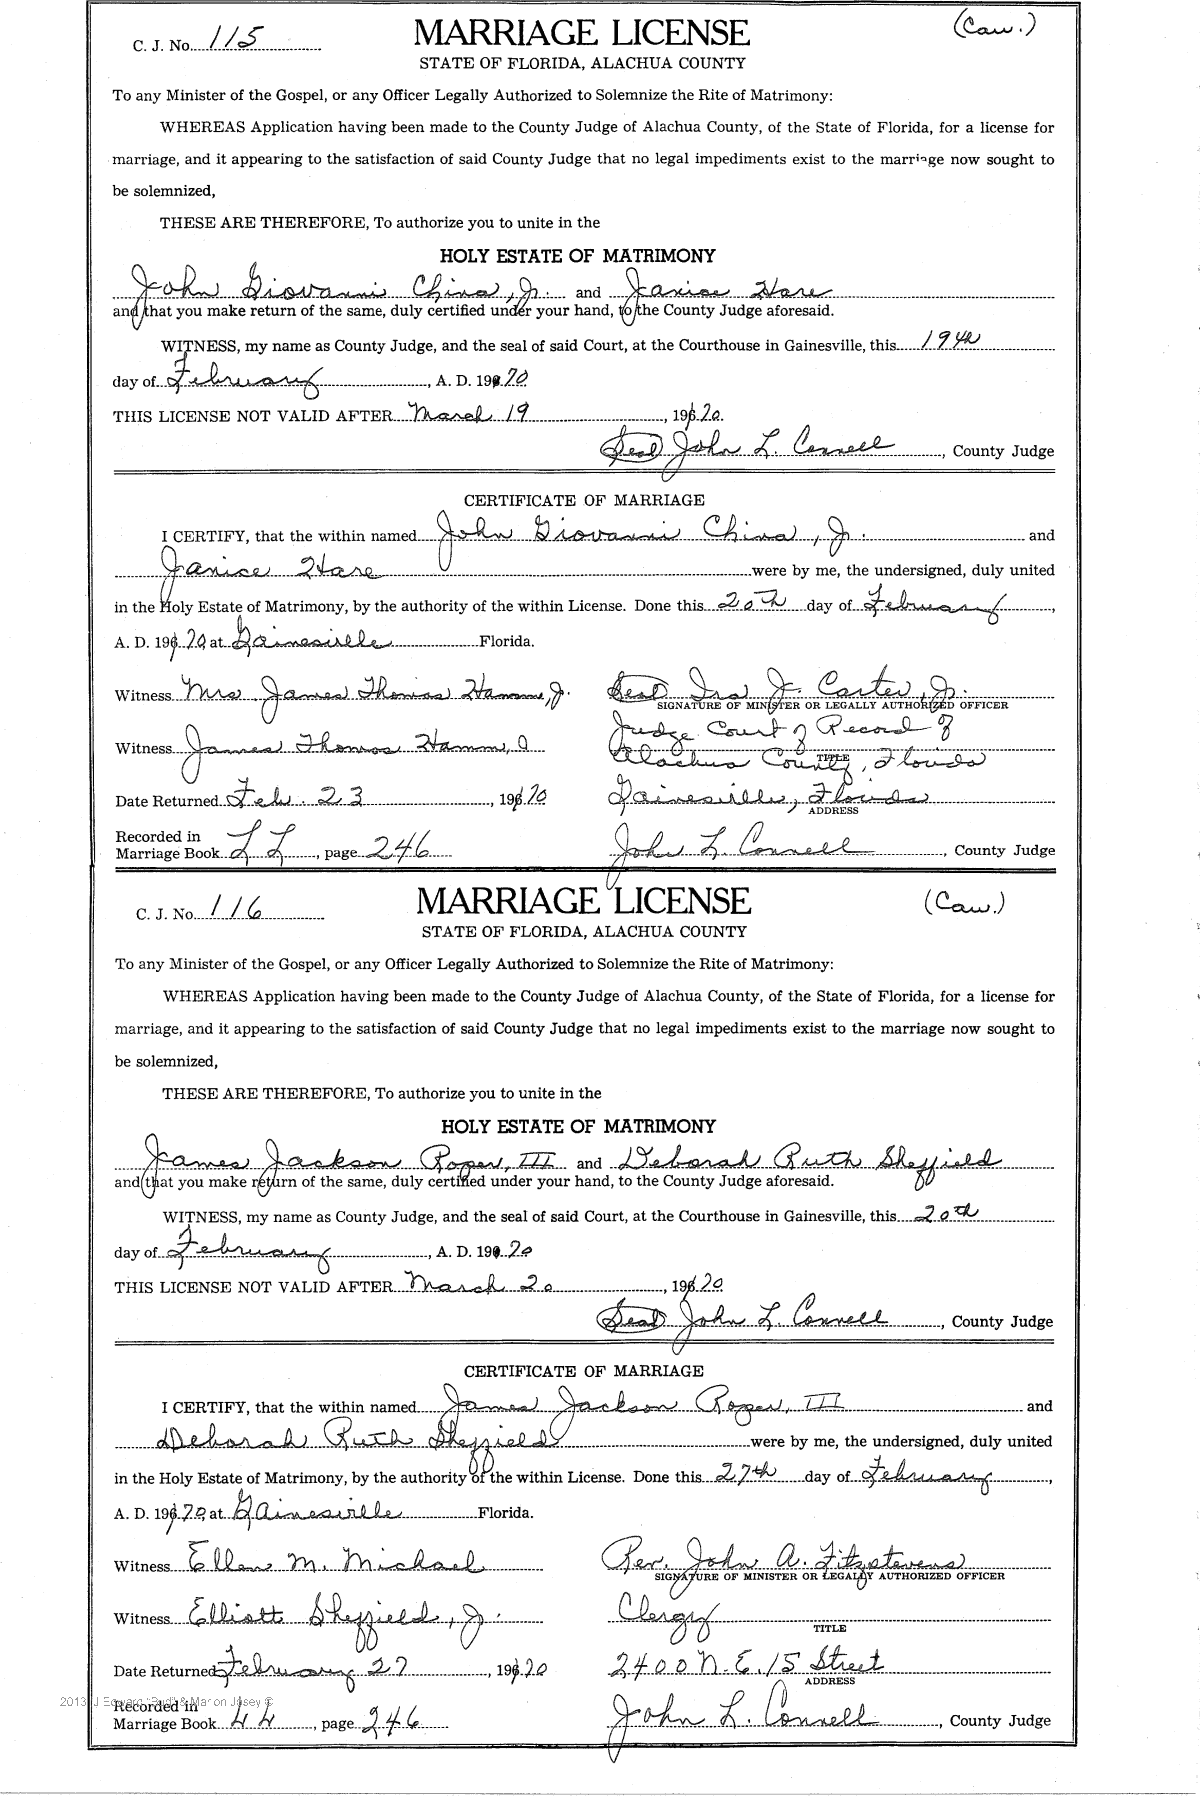 C. J. No. 115 MARRIAGE LICENSE (Cau.)
STATE OF FLORIDA, ALACHUA COUNTY
To any Minister of the Gospel, or any Officer Legally Authorized to Solemnize the Rite of Matrimony:
WHEREAS Application having been made to the County Judge of Alachua County, of the State of Florida, for a license for
marriage, and it appearing to the satisfaction of said County Judge that no legal impediments exist to the marriage now sought to
be solemnized,
THESE ARE THEREFORE, To authorize you to unite in the
HOLY ESTATE OF MATRIMONY
John Giovanni China, Jr. and Janice Hare
and that you make return of the same, duly certified under your hand, to the County Judge aforesaid.
WITNESS, my name as County Judge, and the seal of said Court, at the Courthouse in Gainesville, this 19th
day of February, A. D. 1970
THIS LICENSE NOT VALID AFTER March 19, 1970.
Seal John L. Connell, County Judge
CERTIFICATE OF MARRIAGE
I CERTIFY, that the within named John Giovanni China, Jr. and
Janice Hare were by me, the undersigned, duly united
in the Holy Estate of Matrimony, by the authority of the within License. Done this 20th day of February,
A. D. 1970 at Gainesville Florida.
Witness Mrs James Thomas Hamm, Jr. Seal Ira J. Carter, Jr.
SIGNATURE OF MINISTER OR LEGALLY AUTHORIZED OFFICER
Judge Court of Record of
Witness James Thomas Hamm,
Alachua County, Florida
TITLE
Date Returned Feb. 23, 1970 Gainesville, Florida
ADDRESS
Recorded in
Marriage Book LL, page 246 John L. Connell, County Judge
C. J. No. 116 MARRIAGE LICENSE (Cau.)
STATE OF FLORIDA, ALACHUA COUNTY
To any Minister of the Gospel, or any Officer Legally Authorized to Solemnize the Rite of Matrimony:
WHEREAS Application having been made to the County Judge of Alachua County, of the State of Florida, for a license for
marriage, and it appearing to the satisfaction of said County Judge that no legal impediments exist to the marriage now sought to
be solemnized,
THESE ARE THEREFORE, To authorize you to unite in the
HOLY ESTATE OF MATRIMONY
James Jackson Roper, III and Deborah Ruth Sheffield
and that you make return of the same, duly certified under your hand, to the County Judge aforesaid.
WITNESS, my name as County Judge, and the seal of said Court, at the Courthouse in Gainesville, this 20th
day of February, A. D. 1970
THIS LICENSE NOT VALID AFTER March 20, 1970
Seal John L. Connell, County Judge
CERTIFICATE OF MARRIAGE
I CERTIFY, that the within named James Jackson Roper, III and
Deborah Ruth Sheffield were by me, the undersigned, duly united
in the Holy Estate of Matrimony, by the authority of the within License. Done this 27th day of February,
A. D. 1970, at Gainesville Florida.
Witness Ellen M. Michael Rev. John A. Fitzstevens
SIGNATURE OF MINISTER OR LEGALLY AUTHORIZED OFFICER
Witness Elliott Sheffield, Jr. Clergy
TITLE
Date Returned February 27, 1970 2400 N. E. 15 Street
ADDRESS
2013 J Edward "Bud" & Marion Josey ©
Recorded in
Marriage Book LL, page 246 John L. Connell, County Judge